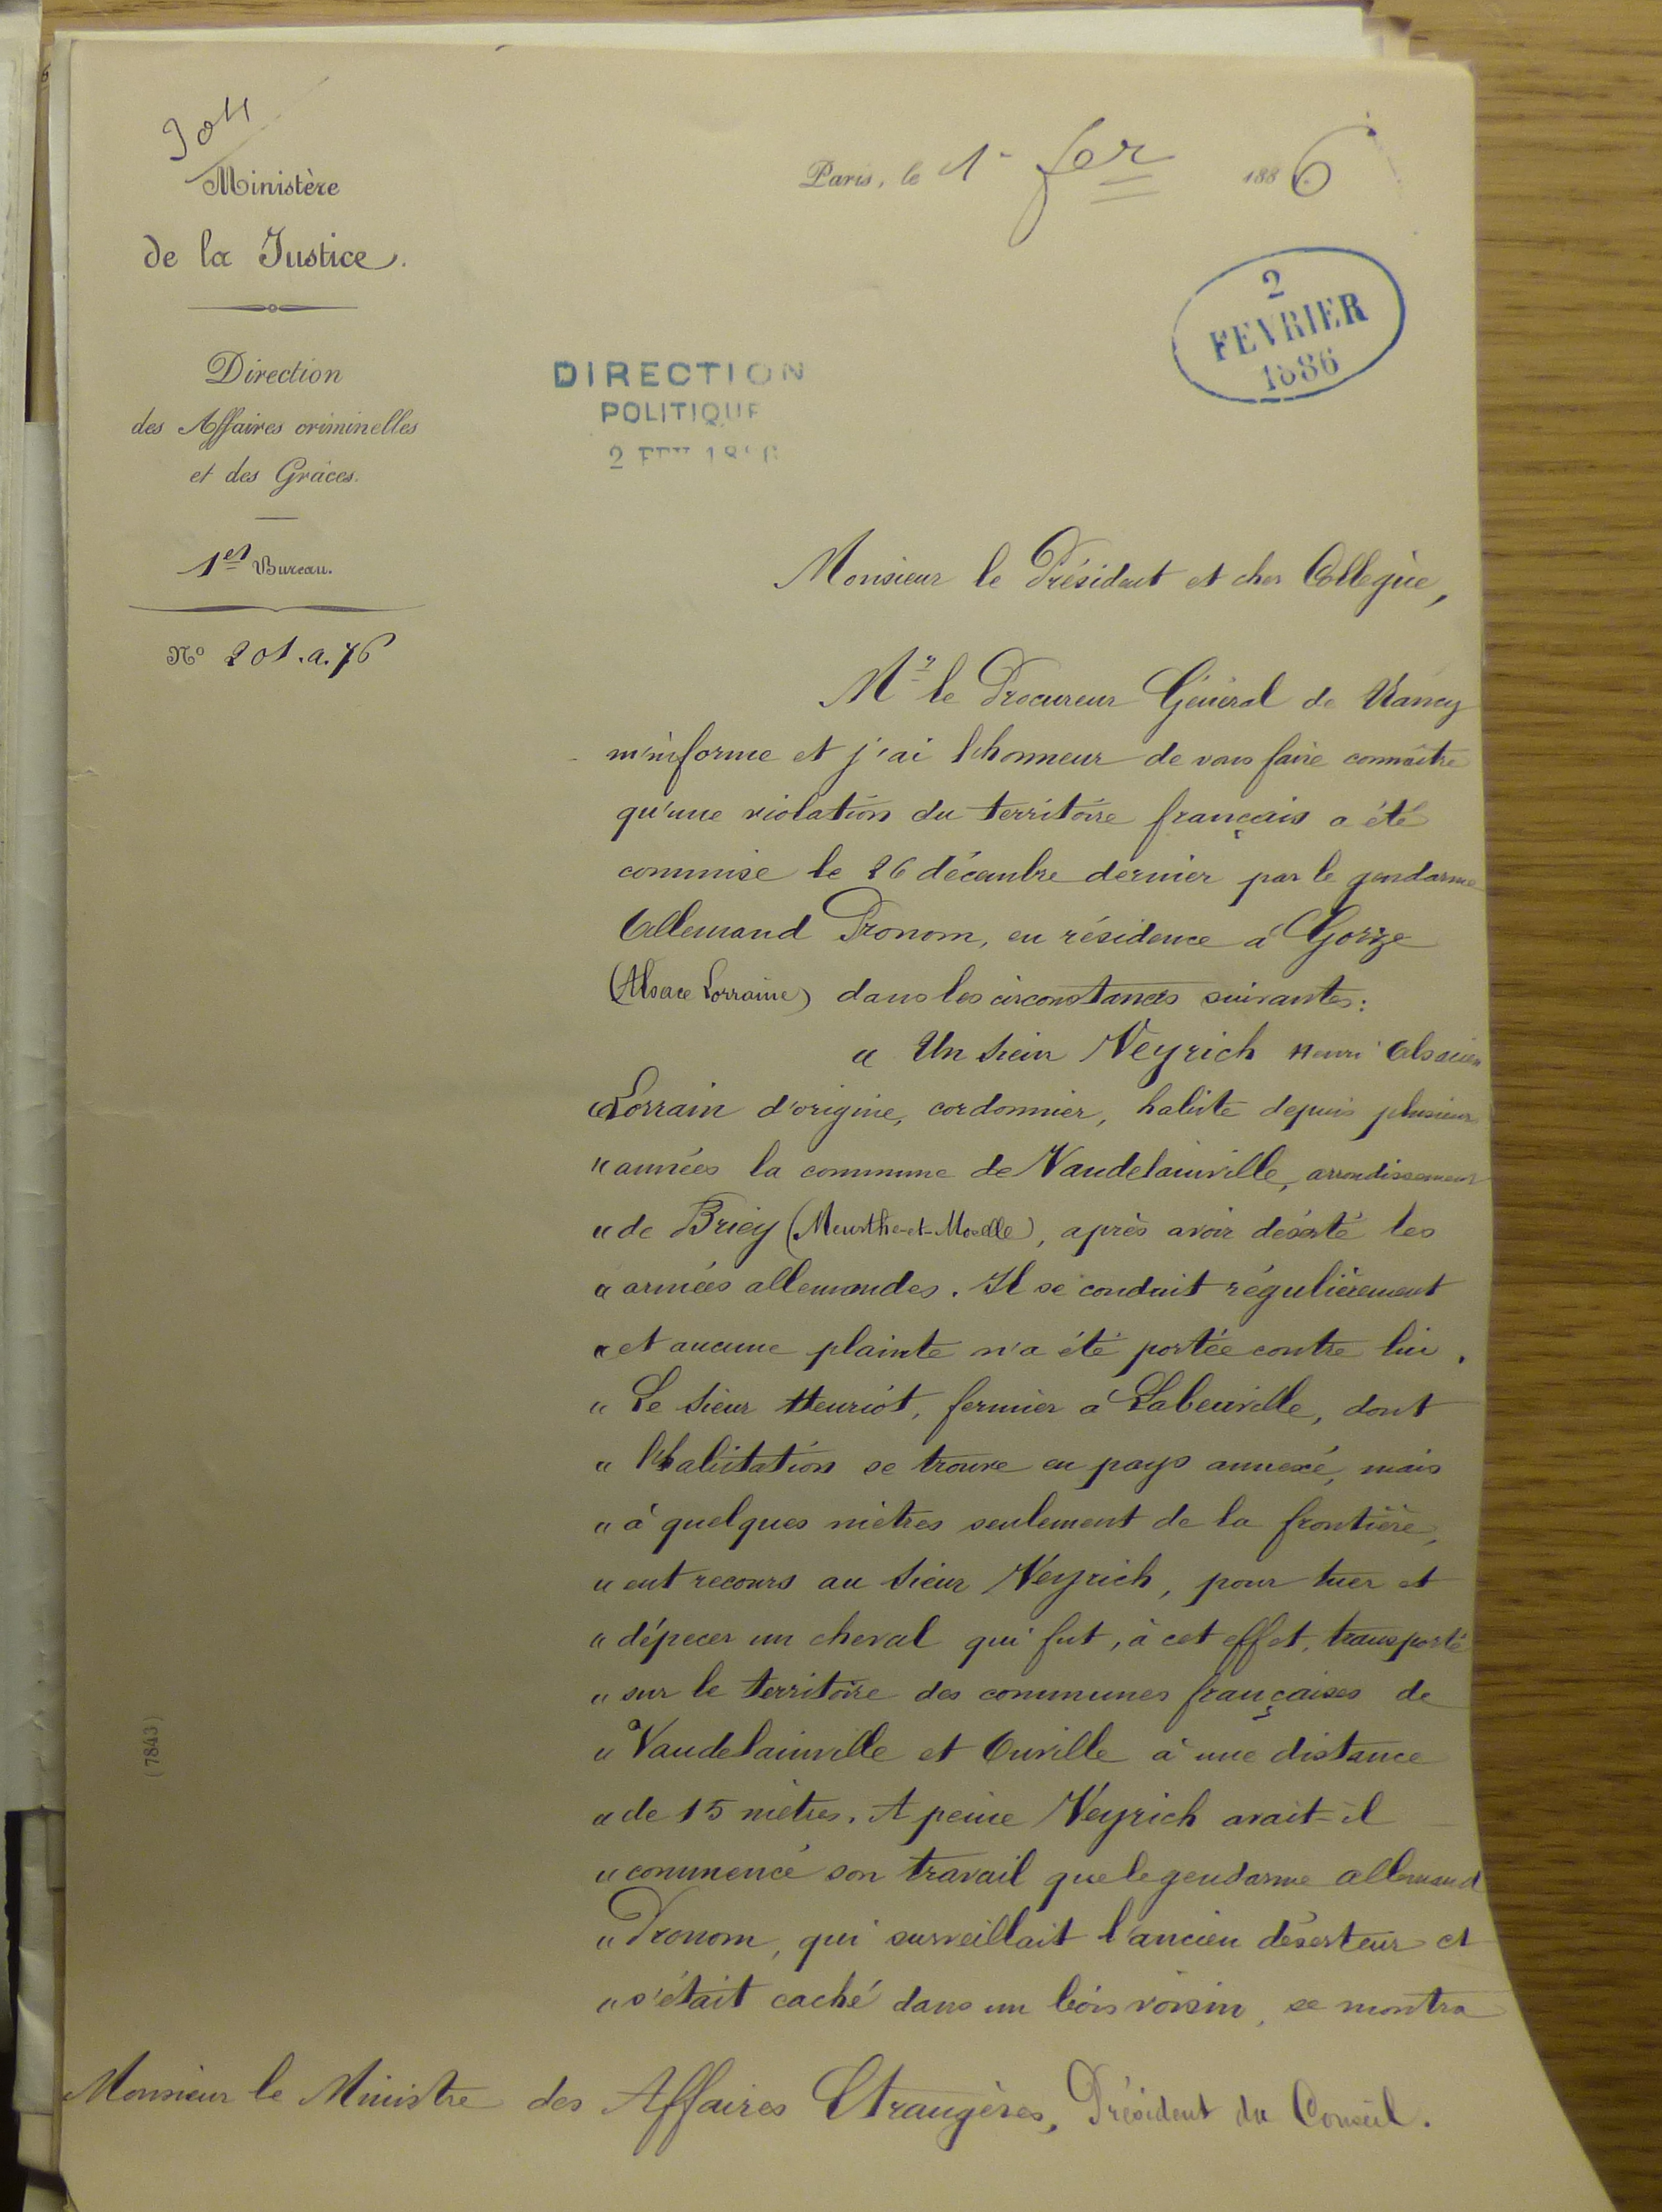 Ministère
de la Justice.
Direction
des Affaires criminelles
et des Grâces.
1er Bureau.
No 201.a.76
Paris, le 1er fer 1886
2
FEVRIER
1886
DIRECTION
POLITIQUE
2 FEV 1886
Monsieur le Président et cher Collegue,
Mr le Procureur Général de Nancy
m'informe et j'ai l'honneur de vous faire connaître
qu'une violation du territoire français a été
commise le 26 décembre dernier par le gendarme
Allemand Pronom, en résidence à Gorze
(Alsace Lorraine) dans les circonstances suivantes:
« Un sieur Neyrich Henri Alsacien
« Lorrain d'origine, cordonnier, habite depuis plusieurs
« années la commune de Vaudelainville, arrondissement
« de Briey (Meurthe-et-Moselle), après avoir déserté les
« armées allemandes. Il se conduit régulièrement
« et aucune plainte n'a été portée contre lui.
« Le sieur Henriot, fermier à Labeuville, dont
« l'habitation se trouve en pays annexé, mais
« à quelques mètres seulement de la frontière,
« eut recours au sieur Neyrich, pour tuer et
« dépecer un cheval qui fut, à cet effet, transporté
« sur le territoire des communes françaises de
« Vaudelainville et Onville à une distance
« de 15 mètres. A peine Neyrich avait-il
« commencé son travail que le gendarme allemand
« Pronom, qui surveillait l'ancien déserteur et
« s'était caché dans un bois voisin, se montra
Monsieur le Ministre des Affaires Etrangères, Président du Conseil.
(7843)